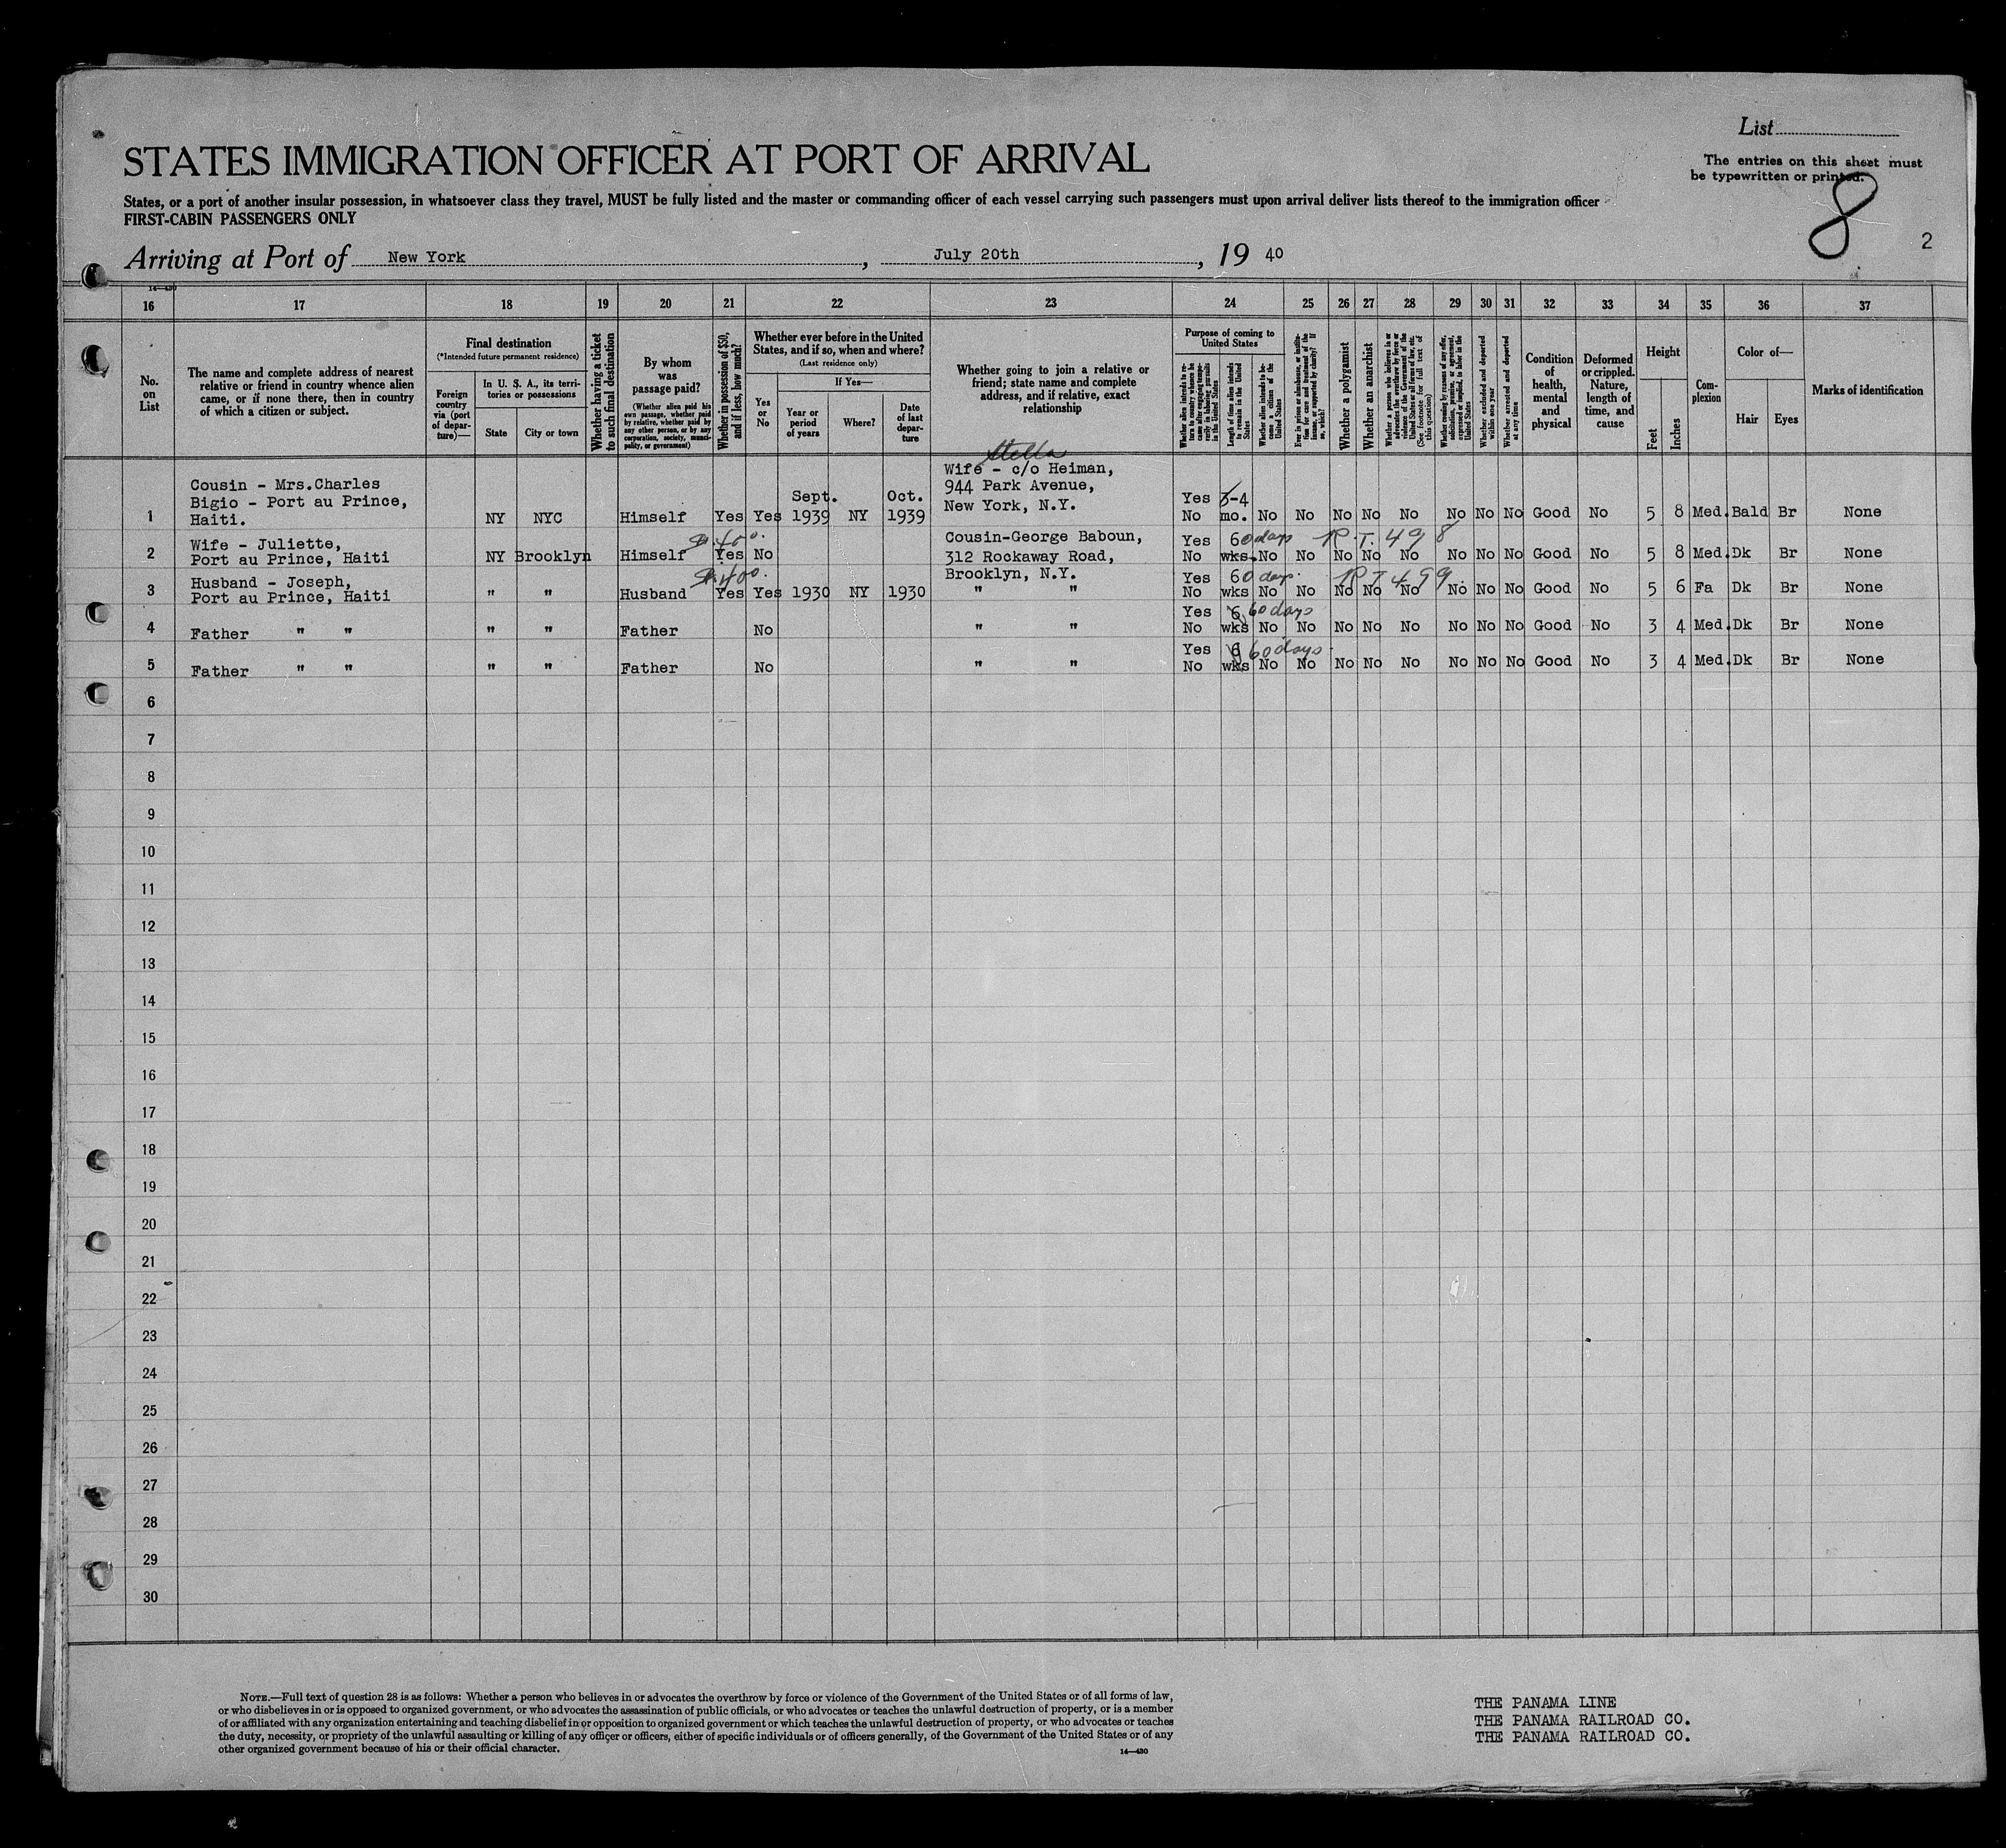 List
STATES IMMIGRATION OFFICER AT PORT OF ARRIVAL
The entries on this sheet must
be typewritten or printed.
States, or a port of another insular possession, in whatsoever class they travel, MUST be fully listed and the master or commanding officer of each vessel carrying such passengers must upon arrival deliver lists thereof to the immigration officer
FIRST-CABIN PASSENGERS ONLY
8
2
Arriving at Port of New York, July 20th, 19 40
14—430
16 17 18 19 20 21 22 23 24 25 26 27 28 29 30 31 32 33 34 35 36 37
No. on List
The name and complete address of nearest relative or friend in country whence alien came, or if none there, then in country of which a citizen or subject.
Final destination
(*Intended future permanent residence)
Foreign country via (port of departure)—
In U. S. A., its territories or possessions
State City or town
Whether having a ticket to such final destination
By whom was passage paid?
(Whether alien paid his own passage, whether paid by relative, whether paid by any other person, or by any corporation, society, municipality, or government)
Whether in possession of $50, and if less, how much?
Whether ever before in the United States, and if so, when and where?
(Last residence only)
Yes or No
If Yes—
Year or period of years
Where?
Date of last departure
Whether going to join a relative or friend; state name and complete address, and if relative, exact relationship
Purpose of coming to United States
Whether alien intends to return to country whence he came after engaging temporarily in laboring pursuits in the United States
Length of time alien intends to remain in the United States
Whether alien intends to become a citizen of the United States
Ever in prison or almshouse, or institution for care and treatment of the insane, or supported by charity? If so, which?
Whether a polygamist
Whether an anarchist
Whether a person who believes in or advocates the overthrow by force or violence of the Government of the United States or all forms of law, etc. (See footnote for full text of this question)
Whether coming by reason of any offer, solicitation, promise, or agreement, expressed or implied, to labor in the United States
Whether excluded and deported within one year
Whether arrested and deported at any time
Condition of health, mental and physical
Deformed or crippled. Nature, length of time, and cause
Height
Feet Inches
Complexion
Color of—
Hair Eyes
Marks of identification
Stella
1 Cousin - Mrs.Charles Bigio - Port au Prince, Haiti. NY NYC Himself Yes Yes Sept. 1939 NY Oct. 1939 Wife - c/o Heiman, 944 Park Avenue, New York, N.Y. Yes No 3-4 mo. No No No No No No No No Good No 5 8 Med. Bald Br None
2 Wife - Juliette, Port au Prince, Haiti NY Brooklyn Himself $400. Yes No Cousin-George Baboun, 312 Rockaway Road, Brooklyn, N.Y. Yes No 60 days wks. No No No No No No No No Good No 5 8 Med. Dk Br None
R.T. 498
3 Husband - Joseph, Port au Prince, Haiti " " Husband $400. Yes Yes 1930 NY 1930 " " Yes No 60 days. wks No No No No No No No No Good No 5 6 Fa Dk Br None
RT 499
4 Father " " " " Father No " " Yes No 6 60 days wks No No No No No No No No Good No 3 4 Med. Dk Br None
5 Father " " " " Father No " " Yes No 6 60 days wks No No No No No No No No Good No 3 4 Med. Dk Br None
6
7
8
9
10
11
12
13
14
15
16
17
18
19
20
21
22
23
24
25
26
27
28
29
30
NOTE.—Full text of question 28 is as follows: Whether a person who believes in or advocates the overthrow by force or violence of the Government of the United States or of all forms of law,
or who disbelieves in or is opposed to organized government, or who advocates the assassination of public officials, or who advocates or teaches the unlawful destruction of property, or is a member
of or affiliated with any organization entertaining and teaching disbelief in or opposition to organized government or which teaches the unlawful destruction of property, or who advocates or teaches
the duty, necessity, or propriety of the unlawful assaulting or killing of any officer or officers, either of specific individuals or of officers generally, of the Government of the United States or of any
other organized government because of his or their official character.
14—430
THE PANAMA LINE
THE PANAMA RAILROAD CO.
THE PANAMA RAILROAD CO.